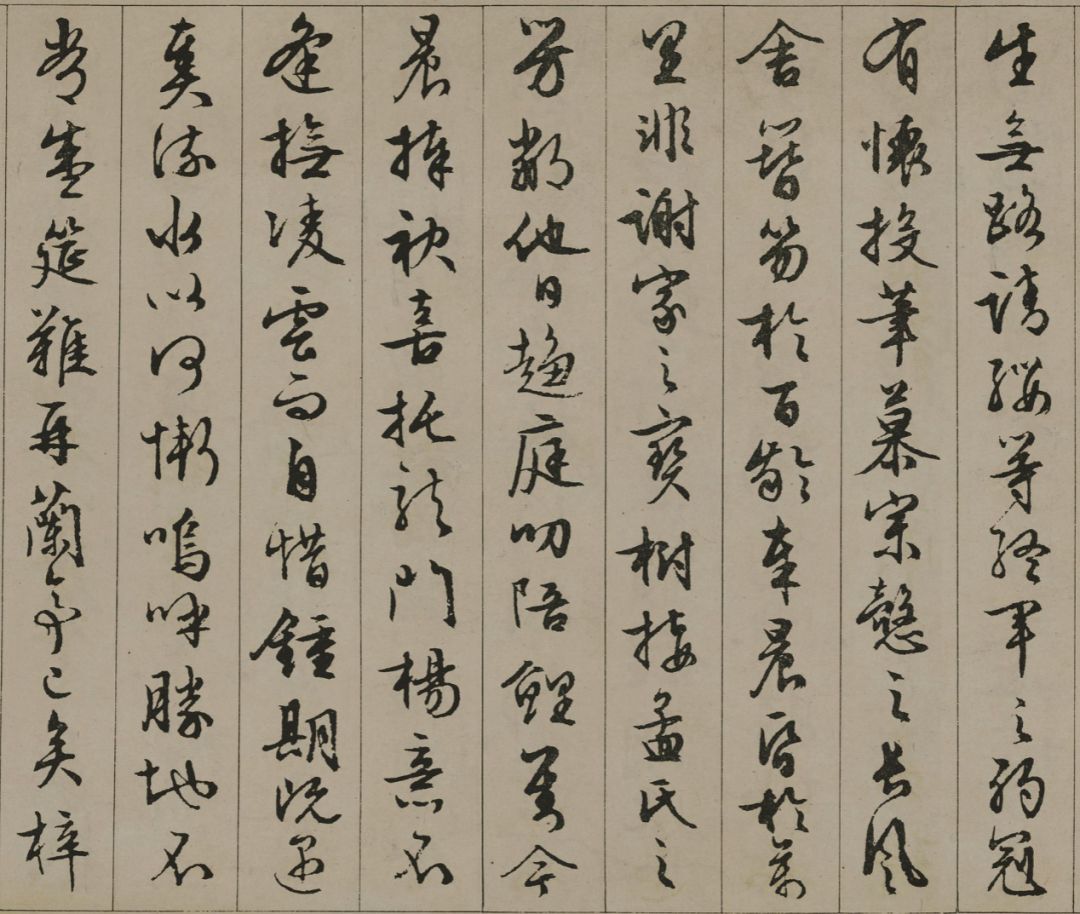 生無路請纓等終軍之弱冠
有懷投筆慕宗慤之長風
舍簪笏於百齡奉晨昏於萬
里非謝家之寶樹接孟氏之
芳鄰他日趨庭叨陪鯉對今
晨捧袂喜托龍門楊意不
逢撫凌雲而自惜鍾期既遇
奏流水以何慚嗚呼勝地不
常盛筵難再蘭亭已矣梓